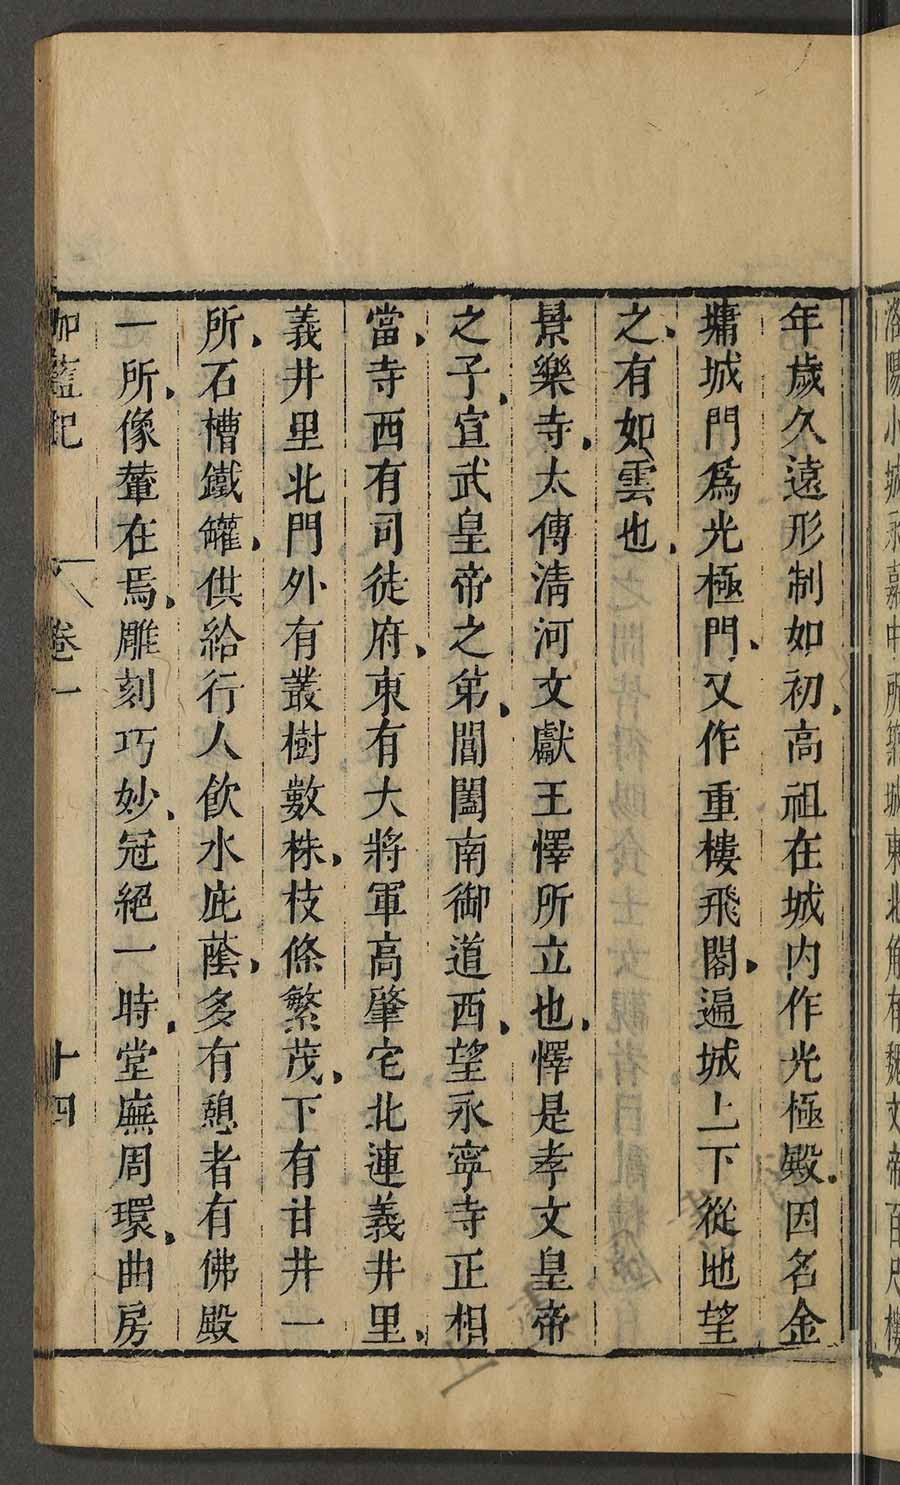 洛陽小城永嘉中所築城東北角有魏文帝百尺樓
年歲久遠形制如初、高祖在城内作光極殿、因名金
墉城門爲光極門、又作重樓飛閣、遍城上下從地望
之、有如雲也、
景樂寺、太傅清河文獻王懌所立也、懌是孝文皇帝
之子、宣武皇帝之弟、閶闔南御道西、望永寧寺正相
當、寺西有司徒府、東有大將軍高肇宅北連義井里、
義井里北門外有叢樹數株、枝條繁茂、下有甘井一
所、石槽鐵罐、供給行人飲水庇蔭、多有憩者有佛殿
一所、像輦在焉、雕刻巧妙、冠絕一時、堂廡周環、曲房
伽藍記 卷一 十四